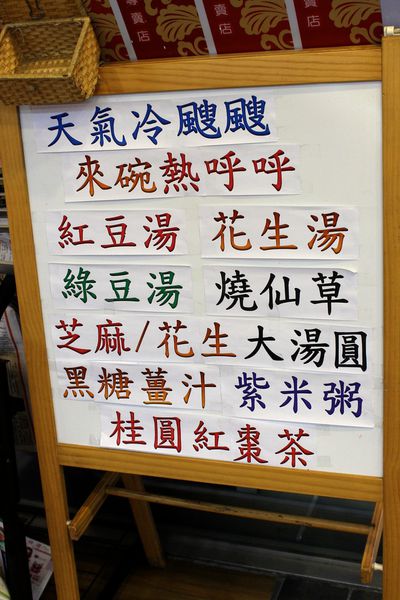 專賣店
賣店
天氣冷颼颼
來碗熱呼呼
紅豆湯 花生湯
綠豆湯 燒仙草
芝麻/花生大湯圓
黑糖薑汁 紫米粥
桂圓紅棗茶